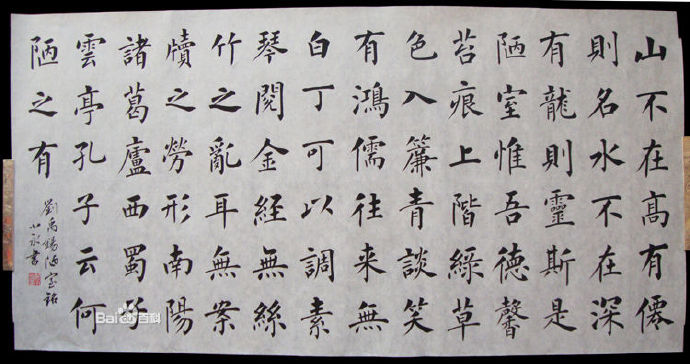 山不在髙有僊
則名水不在深
有龍則靈斯是
陋室惟吾德馨
苔痕上階綠草
色入簾青談笑
有鴻儒往来無
白丁可以調素
琴閱金經無絲
竹之亂耳無案
牘之勞形南陽
諸葛廬西蜀子
雲亭孔子云何
陋之有
劉禹錫陋室銘
書
Baidu百科